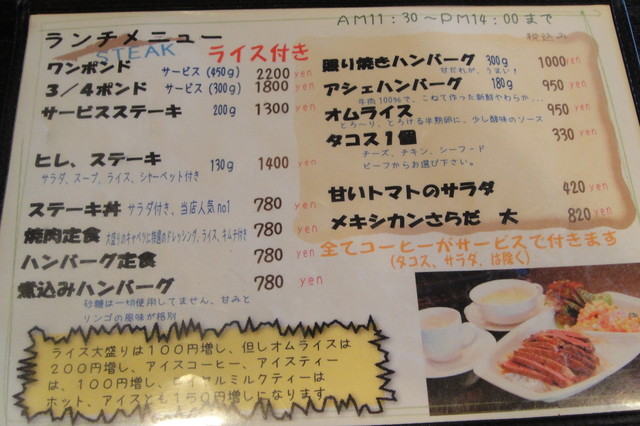 AM11:30～PM14:00まで
ランチメニュー
STEAK
ライス付き
税込み
ワンポンド サービス(450g) 2200 yen
3/4ポンド サービス(300g) 1800 yen
サービスステーキ 200g 1300 yen
ヒレ、ステーキ 130g 1400 yen
サラダ、スープ、ライス、シャーベット付き
ステーキ丼 サラダ付き、当店人気no1 780 yen
焼肉定食 大盛りのキャベツに特製のドレッシング、ライス、キムチ付き 780 yen
ハンバーグ定食 780 yen
煮込みハンバーグ 780 yen
砂糖は一切使用してません、甘みと
リンゴの風味が格別
ライス大盛りは100円増し、但しオムライスは
200円増し、アイスコーヒー、アイスティー
は、100円増し、
ルミルクティーは
ホット、アイスとも150円増しになります
照り焼きハンバーグ 300g 1000 yen
甘だれが、うまい!
アシェハンバーグ 180g 950 yen
牛肉100%で、こねて作った新鮮やわらか...
オムライス 950 yen
とろ～り、とろける半熟卵に、少し酸味のソース
タコス1個 330 yen
チーズ、チキン、シーフード
ビーフからお選び下さい。
甘いトマトのサラダ 420 yen
メキシカンさらだ 大 820 yen
全てコーヒーがサービスで付きます
(タコス、サラダ、は除く)